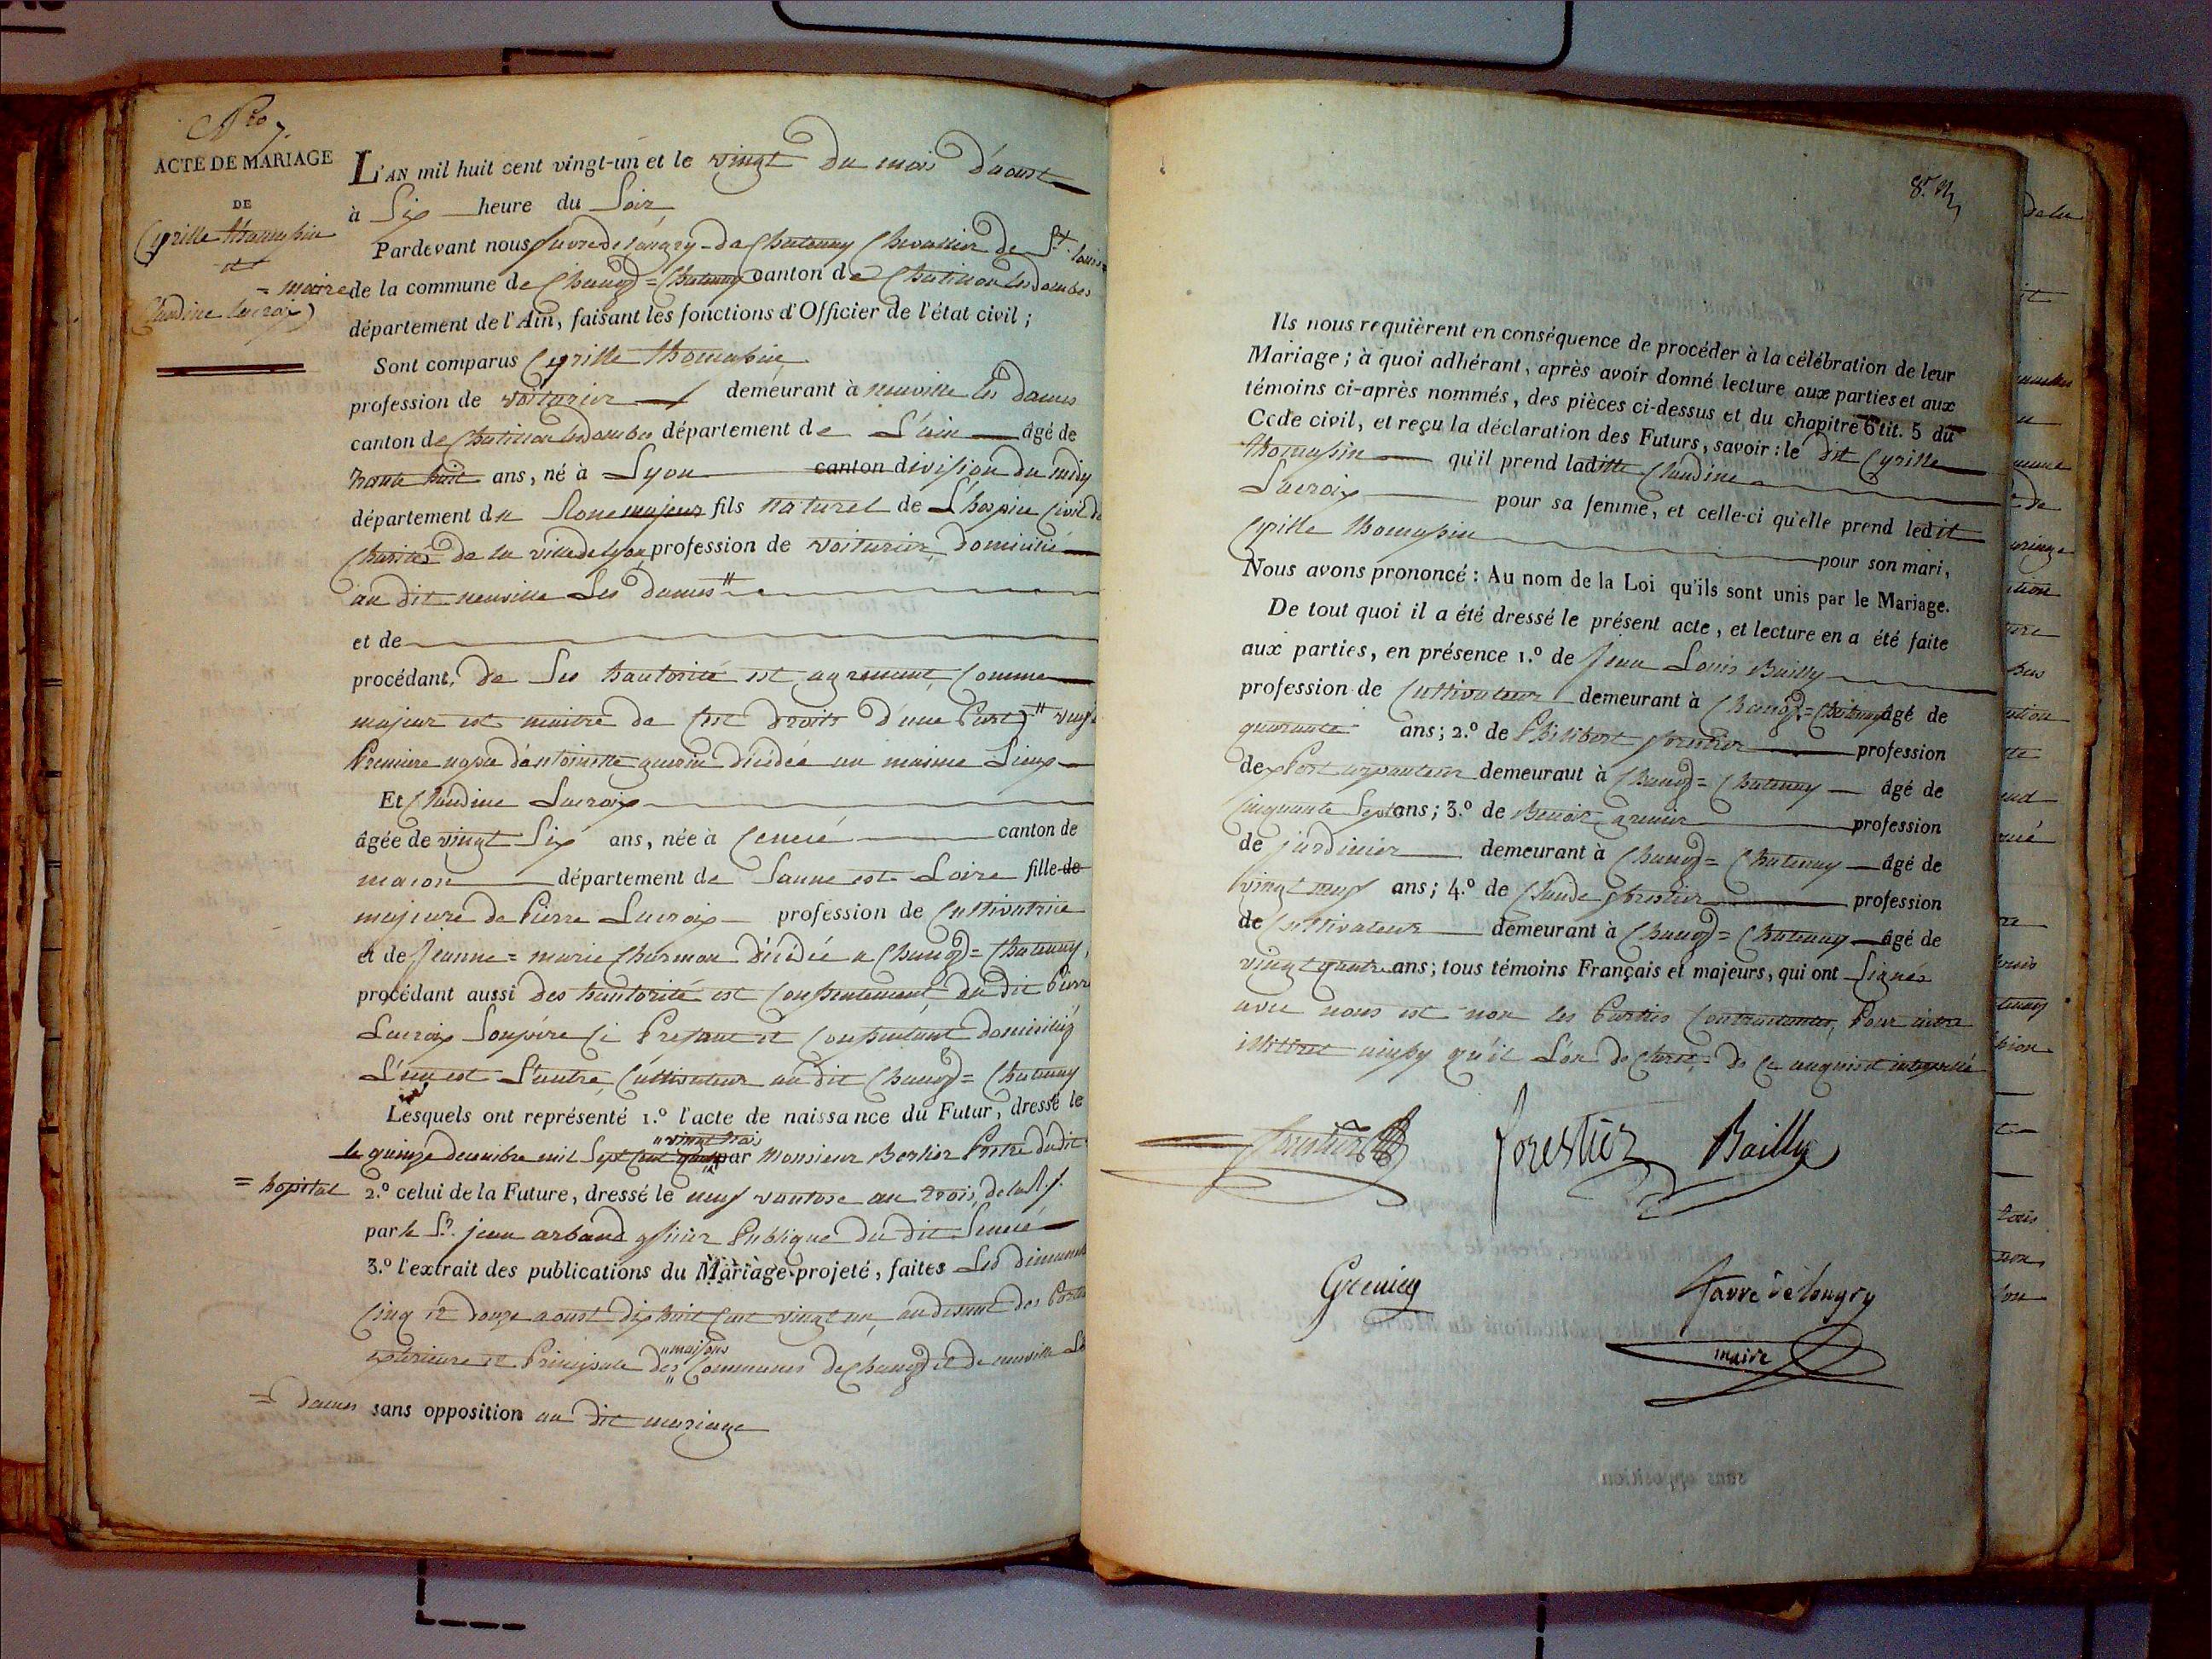 Nro 7.
ACTE DE MARIAGE
DE
Cyrille thomassin
et
Claudine lacroix
L'AN mil huit cent vingt-un et le vingt du mois d'aoust
à Six heure du Soir
Pardevant nous favre de longry de Chatenay Chevallier de St. louis
= maire de la commune de Chanoz = Chatenay canton de Chatillon les dombes
département de l'Ain, faisant les fonctions d'Officier de l'état civil ;
Sont comparus Cyrille thomassin
profession de voiturier demeurant à neuville les dames
canton de Chatillon les dombes département de L'ain âgé de
trente huit ans, né à Lyon canton division du midy
département du Rone majeur fils naturel de L'hospice Civil de
Charité de la ville de lyon profession de voiturier, domicilié
au dit neuville Les dames "
et de
procédant, de Ses hautorité est agrement, Comme
majeur est maitre de Cest droits d'une Part " veuf
Premiere nopce d'antoinette guerin décédée au maime Lieux
Et Claudine Lacroix
âgée de vingt Six ans, née à Cenecé canton de
macon département de Saune est Loire fille de
majeure de Pierre Lacroix profession de Cultivatrice
et de Jeanne = marie Charmon décédée a Chanoz = Chatenay,
procédant aussi des hautorité est Consentement du dit Pierre
Lacroix Son père Ci Presant et Consentant domiciliés
L'un est L'autre Cultivateur au dit Chanoz = Chatenay
Lesquels ont représenté 1.º l'acte de naissance du Futur, dressé le
" vingt trois
le quinze decembre mil Sept Cent quatre par Monsieur Berlier Pretre du dit
= hopital 2.º celui de la Future, dressé le neuf vantose an trois, de la R.f.
par le Sr. jean arband officier Publique du dit Senecé
3.º l'extrait des publications du Mariage projeté, faites Les dimanches
Cinq et douze aoust dix huit Cent vingt un, au devant des Portes
"maisons
exterieure et Principale des Communes de Chanoz et de neuville Les
= dames sans opposition au dit mariage
8.
Ils nous requièrent en conséquence de procéder à la célébration de leur
Mariage ; à quoi adhérant, après avoir donné lecture aux parties et aux
témoins ci-après nommés, des pièces ci-dessus et du chapitre 6 tit. 5 du
Code civil, et reçu la déclaration des Futurs, savoir : le dit Cyrille
thomassin qu'il prend laditte Claudine
Lacroix pour sa femme, et celle-ci qu'elle prend ledit
Cyrille thomassin pour son mari,
Nous avons prononcé : Au nom de la Loi qu'ils sont unis par le Mariage.
De tout quoi il a été dressé le présent acte, et lecture en a été faite
aux parties, en présence 1.º de Jean Louis Bailly
profession de Cultivateur demeurant à Chanoz = Chatenay âgé de
quarante ans ; 2.º de Philibert forestier profession
de demeurant à Chanoz = Chatenay âgé de
Cinquante Sept ans ; 3.º de Benoit grenier profession
de jardinier demeurant à Chanoz = Chatenay âgé de
vingt neuf ans ; 4.º de Claude forestier profession
de Cultivateur demeurant à Chanoz = Chatenay âgé de
vingt quatre ans ; tous témoins Français et majeurs, qui ont Signés
avec nous est non les Parties Contractantes, Pour aitre
illitret ainssy qu'il L'on declaré, de Ce anquis et interpellé
forestier
forestier
Bailly
Grenier
favre de longry
maire